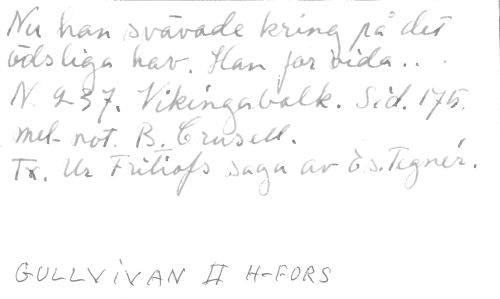 Nu han svävade kring på det
ödsliga hav. Han for vida...
N. 237. Vikingabalk. Sid. 175.
mel- not. B. Crusell.
Tx. Ur Fritiofs saga av Es. Tegnér.
GULLVIVAN II H-FORS